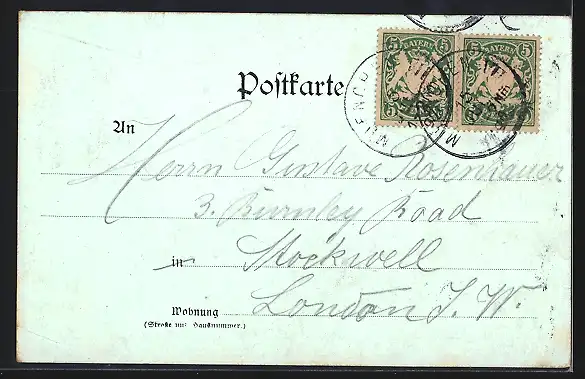 5 BAYERN 5 5 BAYERN 5
MUENCHEN
Postkarte
An
Herrn Gustave Rosenhauer
3. Burnley Road
in Stockwell
London S. W.
Wohnung
(Straße und Hausnummer.)